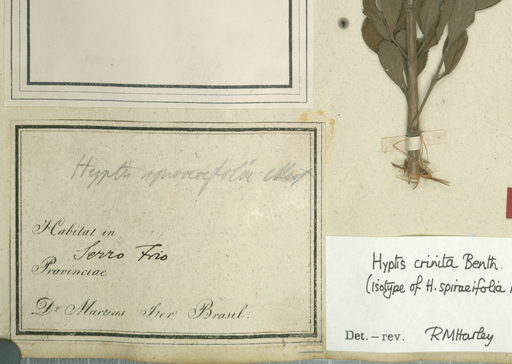 Hyptis spiraeifolia Mart
Habitat in
Serro Frio
Provinciae
Dr Martius Iter Brasil:
Hyptis crinita Benth.
(isotype of H. spiraeifolia
Det. – rev. RMHarley